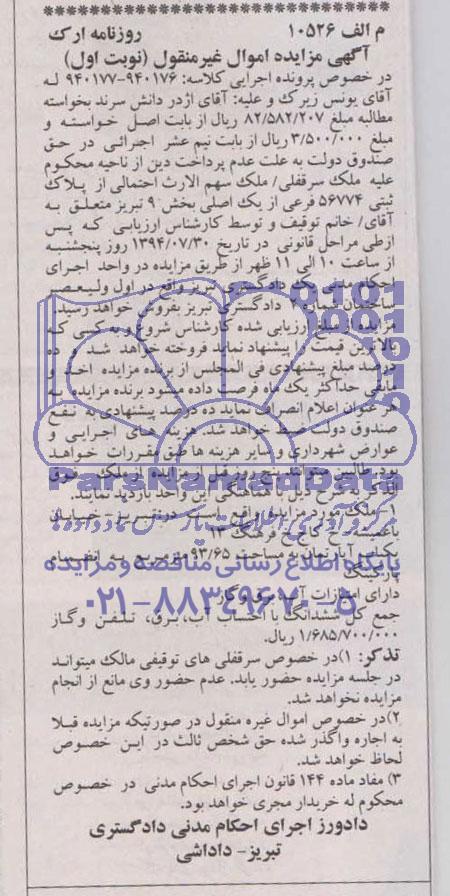 م الف ۱۰۵۲۶ روزنامه ارک
آگهی مزایده اموال غیرمنقول (نوبت اول)
در خصوص پرونده اجرایی کلاسه: ۹۴۰۱۷۶-۹۴۰۱۷۷ له
آقای یونس زیرک و علیه: آقای اژدر دانش سرند بخواسته
مطالبه مبلغ ۸۲/۵۸۲/۲۰۷ ریال از بابت اصل خواسته و
مبلغ ۳/۵۰۰/۰۰۰ ریال از بابت نیم عشر اجرائی در حق
صندوق دولت به علت عدم پرداخت دین از ناحیه محکوم
علیه ملک سرقفلی/ ملک سهم الارث احتمالی از پلاک
ثبتی ۵۶۷۷۴ فرعی از یک اصلی بخش ۹ تبریز متعلق به
آقای/ خانم توقیف و توسط کارشناس ارزیابی که پس
ازطی مراحل قانونی در تاریخ ۱۳۹۴/۰۷/۳۰ روز پنجشنبه
از ساعت ۱۰ الی ۱۱ ظهر از طریق مزایده در واحد اجرای
احکام مدنی یک دادگستری تبریز واقع در اول ولیعصر
ساختمان شماره ۲ دادگستری تبریز بفروش خواهد رسید.
مزایده از مبلغ ارزیابی شده کارشناس شروع و به کسی که
بالاترین قیمت را پیشنهاد نماید فروخته خواهد شد و ده
درصد مبلغ پیشنهادی فی المجلس از برنده مزایده اخذ و
مابقی حداکثر یک ماه فرصت داده میشود برنده مزایده به
هر عنوان اعلام انصراف نماید ده درصد پیشنهادی به نفع
صندوق دولت ضبط خواهد شد. هزینه های اجرایی و
عوارض شهرداری و سایر هزینه ها طبق مقررات خواهد
بود. طالبین میتوانند پنج روز قبل از مزایده از ملک فوق
الذکر به شرح ذیل با هماهنگی این واحد بازدید نمایند.
۱- ملک مورد مزایده واقع است در تبریز- خیابان
باغمیشه- خ کاج- خ فرهنگ ۱۳
یکباب آپارتمان به مساحت ۹۳/۶۵ مترمربع به انضمام
پارکینگ
دارای امتیازات آب، برق و گاز
جمع کل ششدانگ با احتساب آب، برق، تلفن و گاز
۱/۶۸۵/۷۰۰/۰۰۰ ریال.
تذکر: ۱)در خصوص سرقفلی های توقیفی مالک میتواند
در جلسه مزایده حضور یابد. عدم حضور وی مانع از انجام
مزایده نخواهد شد.
۲)در خصوص اموال غیره منقول در صورتیکه مزایده قبلا
به اجاره واگذر شده حق شخص ثالث در این خصوص
لحاظ خواهد شد.
۳) مفاد ماده ۱۴۴ قانون اجرای احکام مدنی در خصوص
محکوم له خریدار مجری خواهد بود.
دادورز اجرای احکام مدنی دادگستری
تبریز- داداشی
ParsNamadData
پایگاه اطلاع رسانی مناقصه و مزایده
۰۲۱-۸۸۳۴۹۶۷۰-۵